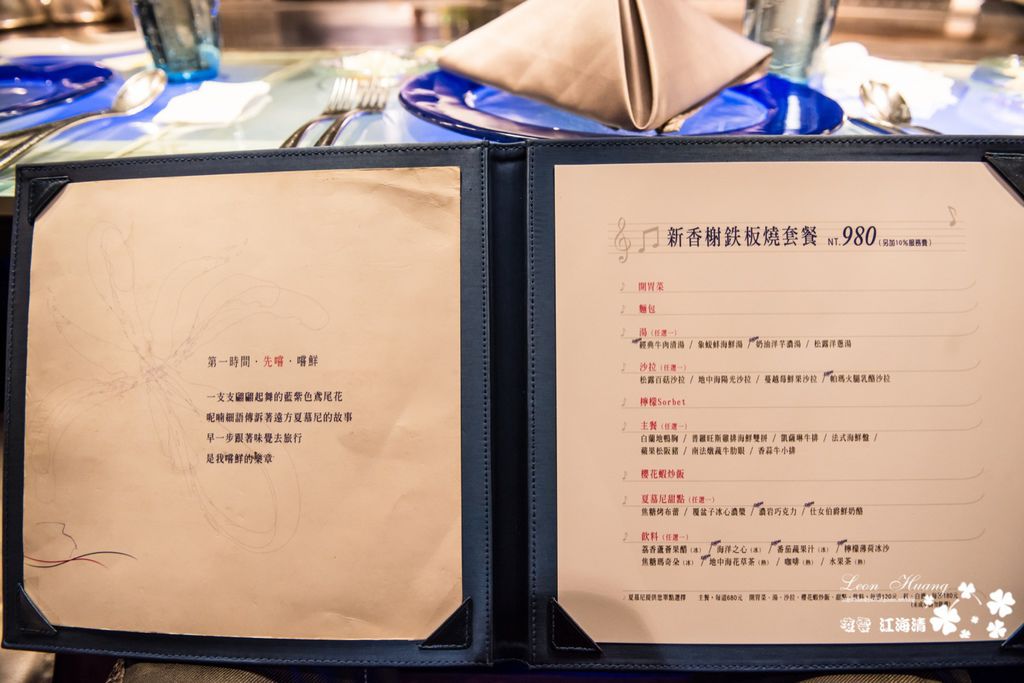 第一時間・先嚐・嚐鮮
一支支翩翩起舞的藍紫色鳶尾花
呢喃細語傳訴著遠方夏慕尼的故事
早一步跟著味覺去旅行
是我嚐鮮的樂章
新香榭鉄板燒套餐 NT. 980 (另加10%服務費)
開胃菜
麵包
湯 (任選一)
經典牛肉清湯 / 象鮫鮮海鮮湯 / 奶油洋芋濃湯 / 松露洋蔥湯
沙拉 (任選一)
松露百菇沙拉 / 地中海陽光沙拉 / 蔓越莓鮮果沙拉 / 帕瑪火腿乳酪沙拉
檸檬Sorbet
主餐 (任選一)
白蘭地鴨胸 / 普羅旺斯雞排海鮮雙拼 / 凱薩琳牛排 / 法式海鮮盤 /
蘋果松阪豬 / 南法燉蔬牛肋眼 / 香蒜牛小排
櫻花蝦炒飯
夏慕尼甜點 (任選一)
焦糖烤布蕾 / 覆盆子冰心濃漿 / 濃岩巧克力 / 仕女伯爵鮮奶酪
飲料 (任選一)
荔香蘆薈果醋 (冰) / 海洋之心 (冰) / 番茄蔬果汁 (冰) / 檸檬薄荷冰沙
焦糖瑪奇朵 (冰) / 地中海花草茶 (熱) / 咖啡 (熱) / 水果茶 (熱)
夏慕尼提供您單點選擇 主餐，每道680元 開胃菜、湯、沙拉、櫻花蝦炒飯、甜點、飲料，每道120元
Leon Huang
江海清